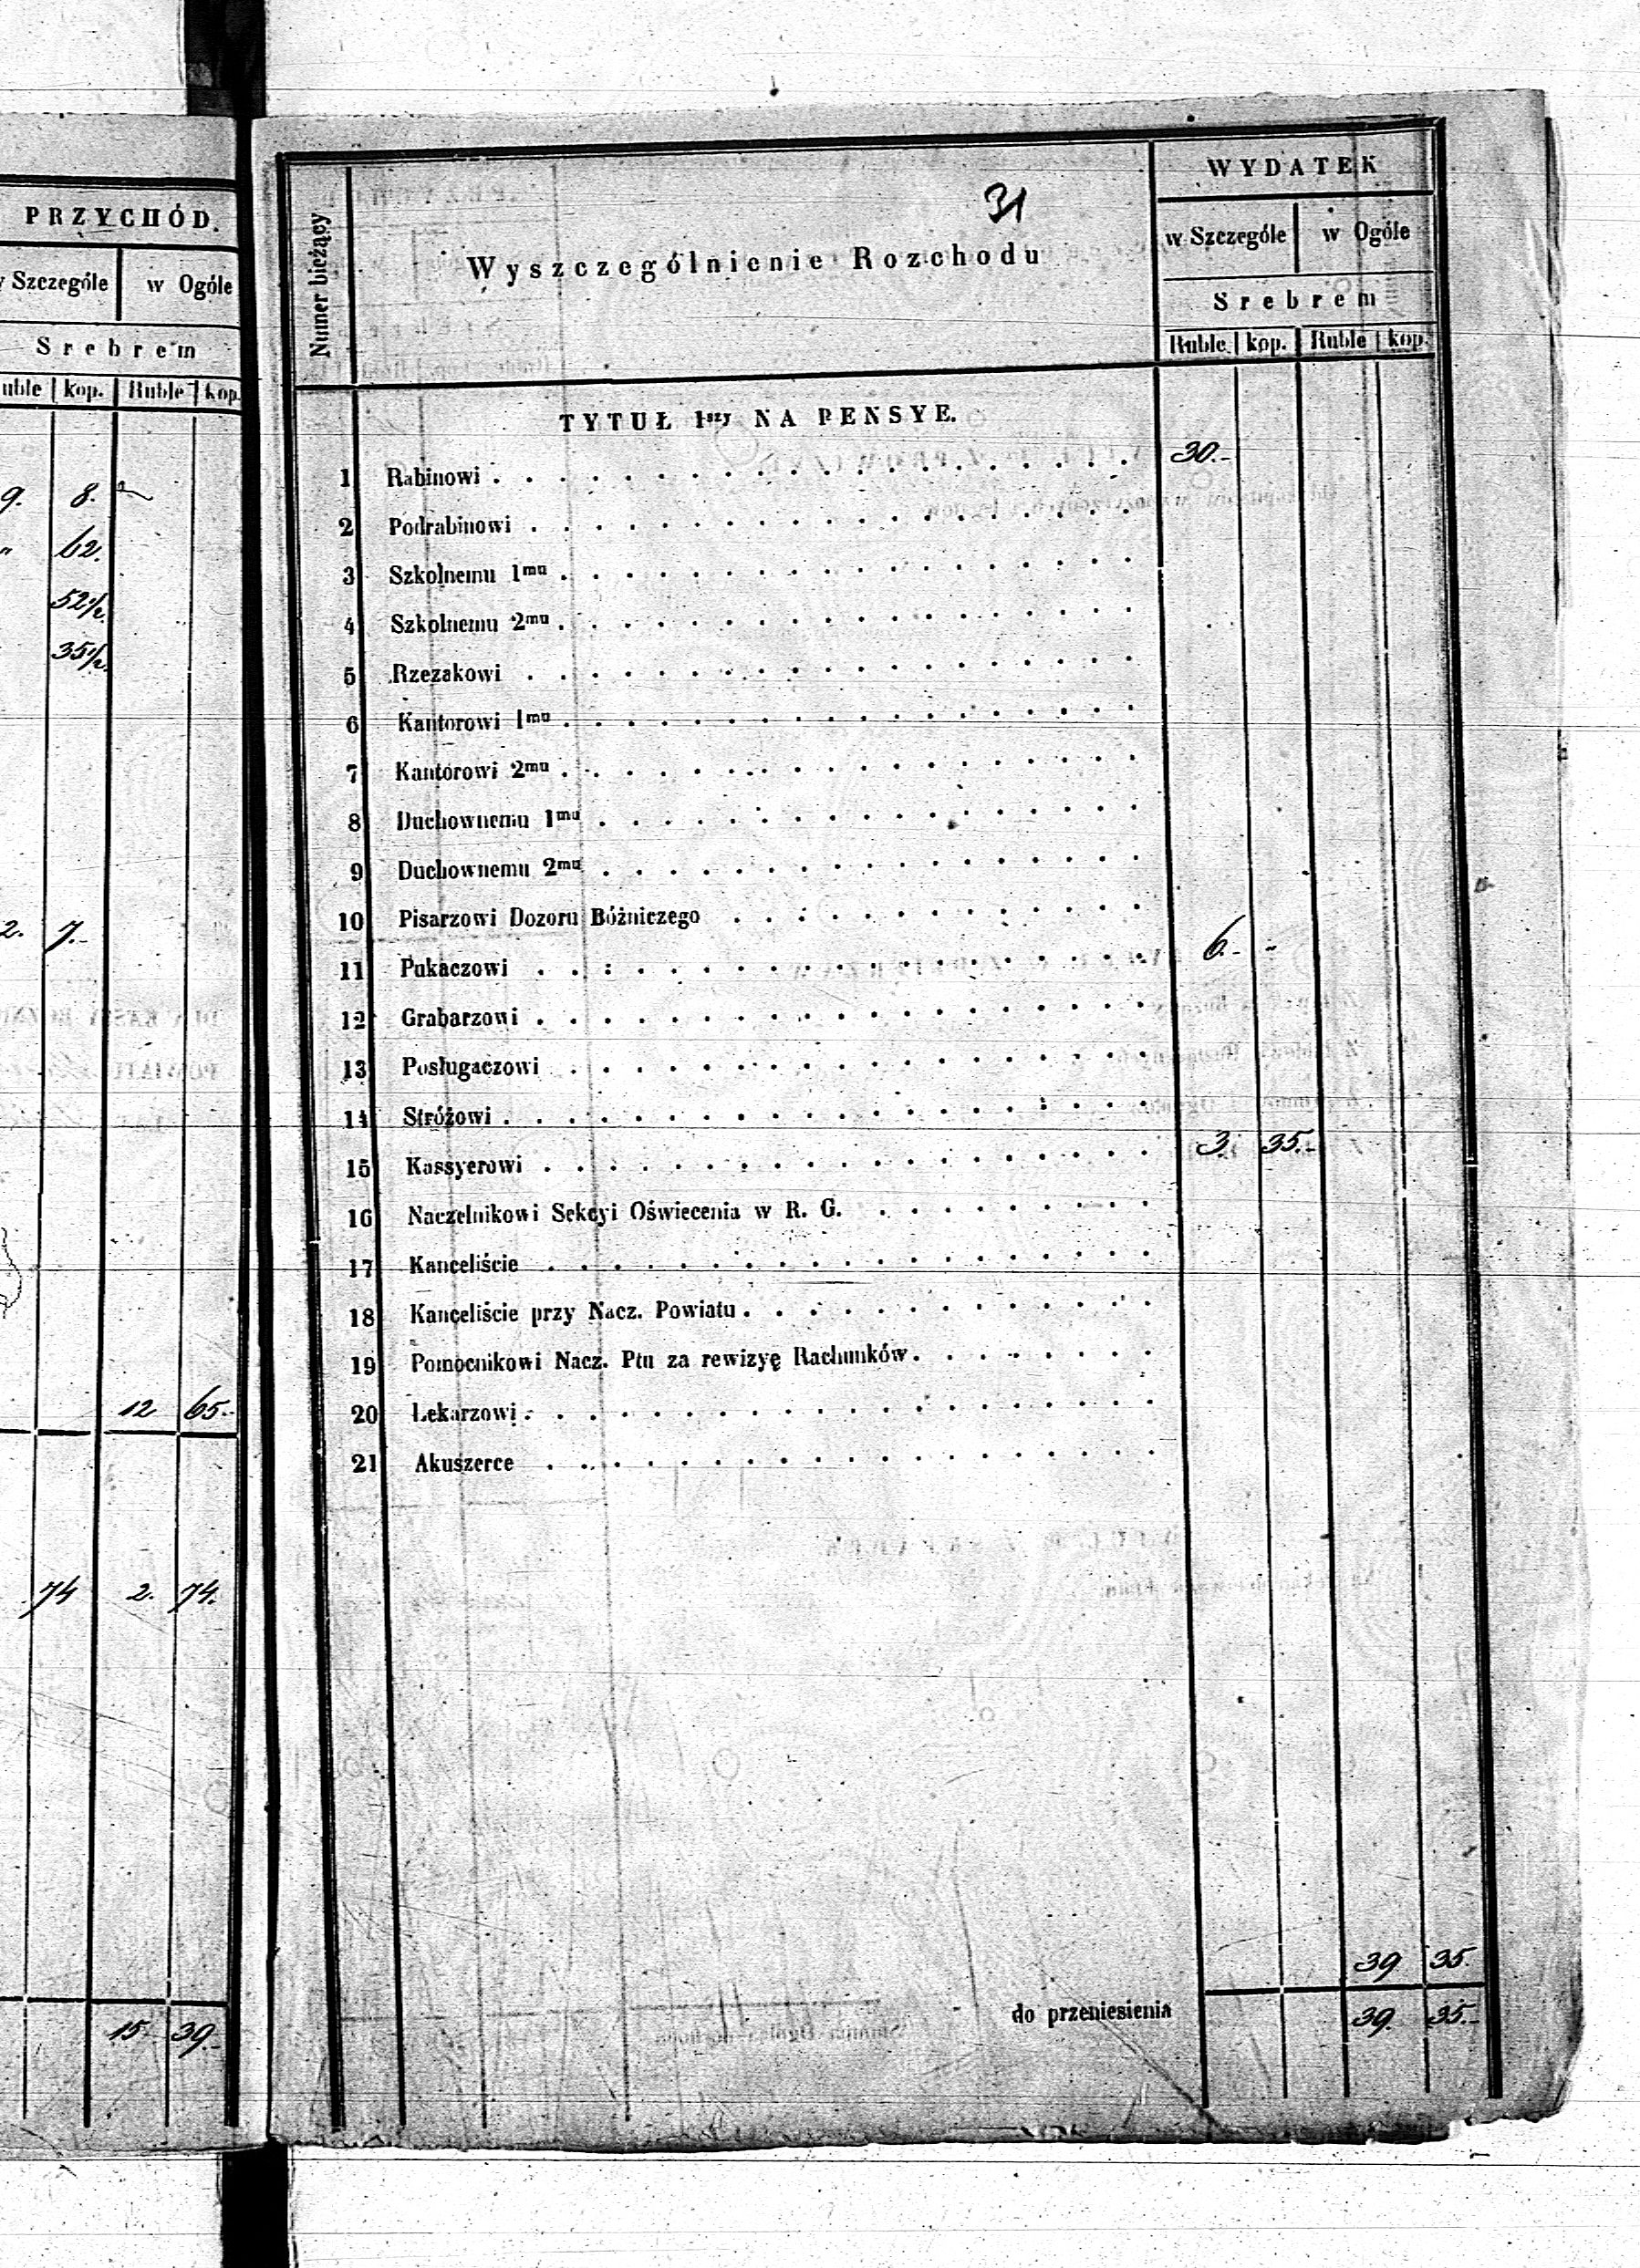 PRZYCHÓD.
Szczególe w Ogóle
Srebrem
kop. Ruble kop.
9. 8.
" 62.
52 1/2.
35 1/2.
2. 7.-
12 65.-
74 2. 74.
15 39.-
31
Numer bieżący
Wyszczególnienie Rozchodu
WYDATEK
w Szczególe w Ogóle
Srebrem
Ruble kop. Ruble kop.
TYTUŁ 1szy NA PENSYE.
1 Rabinowi 30.-
2 Podrabinowi
3 Szkolnemu 1mu
4 Szkolnemu 2mu
5 Rzezakowi
6 Kantorowi 1mu
7 Kantorowi 2mu
8 Duchownemu 1mu
9 Duchownemu 2mu
10 Pisarzowi Dozoru Bóżniczego
11 Pukaczowi 6.- -
12 Grabarzowi
13 Posługaczowi
14 Stróżowi
15 Kassyerowi 3. 35.-
16 Naczelnikowi Sekcyi Oświecenia w R. G.
17 Kanceliście
18 Kanceliście przy Nacz. Powiatu
19 Pomocnikowi Nacz. Ptu za rewizyę Rachunków
20 Lekarzowi
21 Akuszerce
39 35.
do przeniesienia 39. 35.-